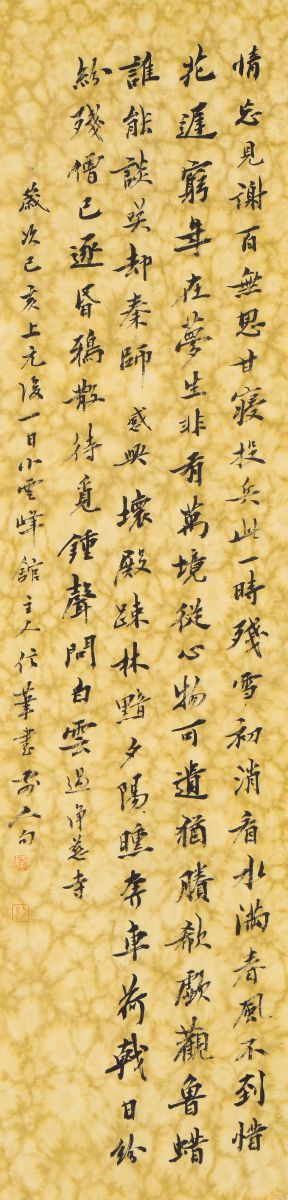 情忘見謝百無思甘寢投兵此一時殘雪初消看水滿春風不到惜
花遲窮年在夢生非有萬境從心物可遺猶賸欷歔觀魯蜡
誰能談笑却秦師 感興 壞殿疎林黯夕陽曛奔車荷戟日紛
紛殘僧已逐昏鴉散待覓鐘聲問白雲 過淨慈寺
歲次己亥上元後一日小雲峰館主人信筆書前人句